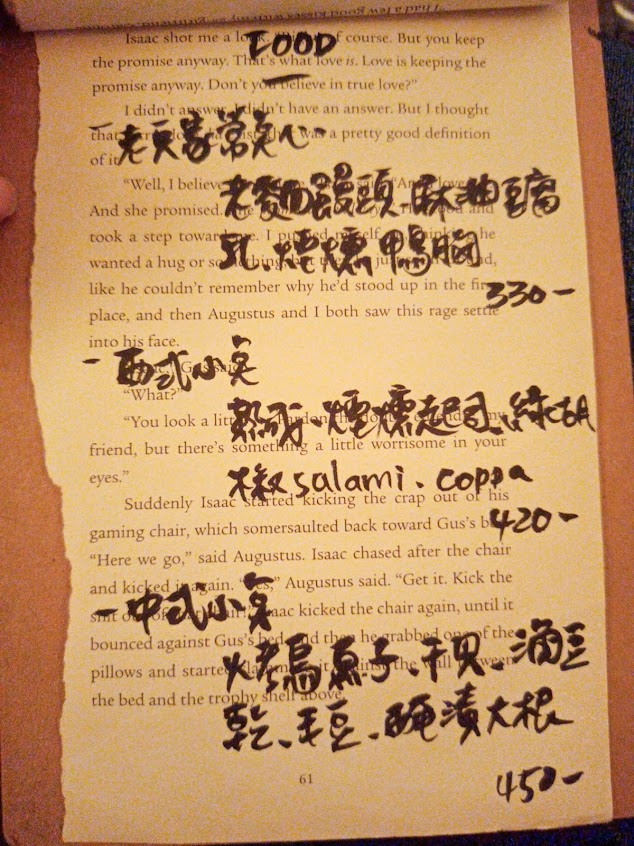 I had a few good kisses with my
Isaac shot me a look. of course. But you keep
FOOD
the promise anyway. That's what love is. Love is keeping the
promise anyway. Don't you believe in true love?"
I didn't answer. I didn't have an answer. But I thought
that was a pretty good definition
- 老頭家常点心 -
of it.
"Well, I believe
老麵饅頭、麻油豆腐
And she promised. and
took a step toward me. I
乳、煙燻鴨胸
wanted a hug or something, but
like he couldn't remember why he'd stood up in the first
330-
place, and then Augustus and I both saw this rage settle
into his face.
- 西式小点
"What?"
"You look a little
熟成、煙燻起司、綠胡
friend, but there's something a little worrisome in your
eyes."
椒salami、coppa
Suddenly Isaac started kicking the crap out of his
gaming chair, which somersaulted back toward Gus's bed.
420-
"Here we go," said Augustus. Isaac chased after the chair
and kicked it again. "Yes," Augustus said. "Get it. Kick the
- 中式小点
Isaac kicked the chair again, until it
bounced against Gus's bed, and then he grabbed one of the
烤烏魚子、干貝、滷豆
pillows and started slamming it against the wall between
the bed and the trophy shelf above.
乾、毛豆、醃漬大根
61
450-